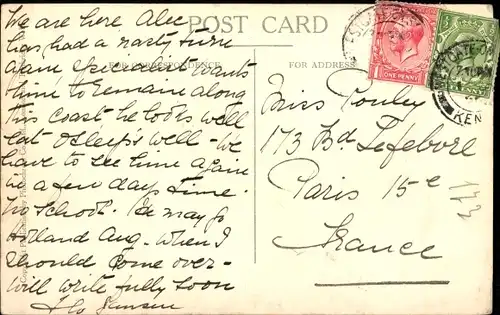 POST CARD
FOR CORRESPONDENCE
FOR ADDRESS
We are here Alec
has had a nasty turn
again specialist wants
him to remain along
this coast he looks well
eat & sleeps well - We
have to see him again
in a few days time.
no School. Id may go
Holland Aug. when I
should come over -
will write fully soon
Miss Pouley
173 Bd Lefebore
Paris 15e
France
ONE PENNY
KEN